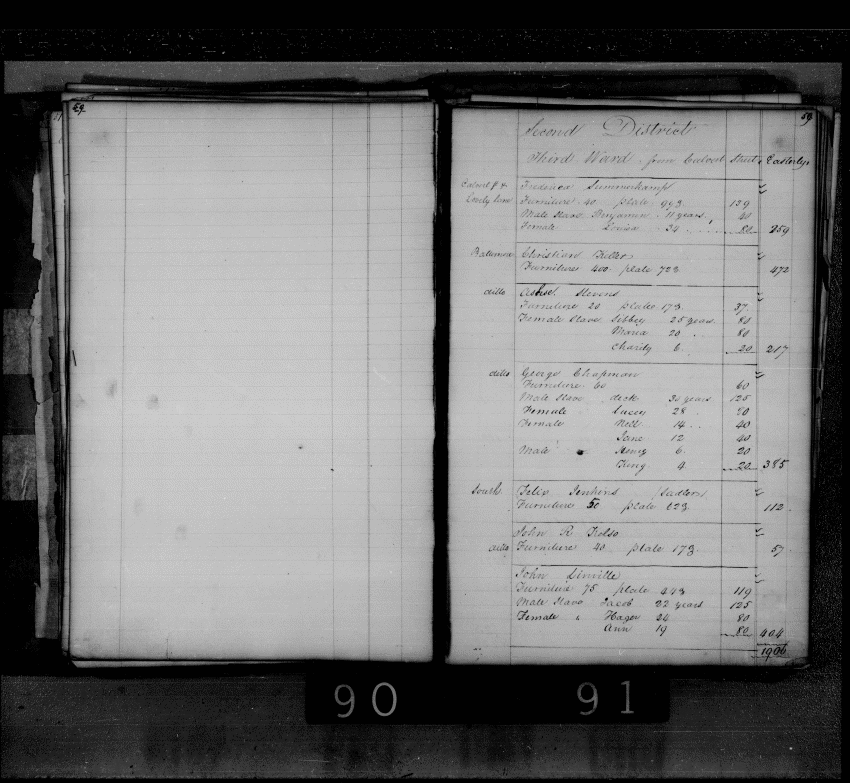 59
59
Second District
Third Ward from Calvert Street Easterly
Calvert St &
Lovely Lane
Frederica Summerkamp
Furniture 40 plate 993 139
Male Slave Benjamin 11 years 40
Female Louisa 34 80 259
Baltimore Christian Keller
Furnitures 400 plate 723 472
ditto Stevens
Furniture 20 plate 173 37
Female Slave Sibbey 25 years 80
Maria 20 80
Charity 6 20 217
ditto George Chapman
Furniture 60 60
Male Slave 30 years 125
Female Lucey 28 80
Female Nell 14 40
Jane 12 40
Male Henry 6 20
King 4 20 385
South Felix Jenkins (Sadler)
Furniture 50 plate 623 112
John R Kelso
ditto Furniture 40 plate 173 57
John Linville
Furniture 75 plate 443 119
Male Slave Jacob 22 years 125
Female " Hager 24 80
Ann 19 80 404
1906
90 91